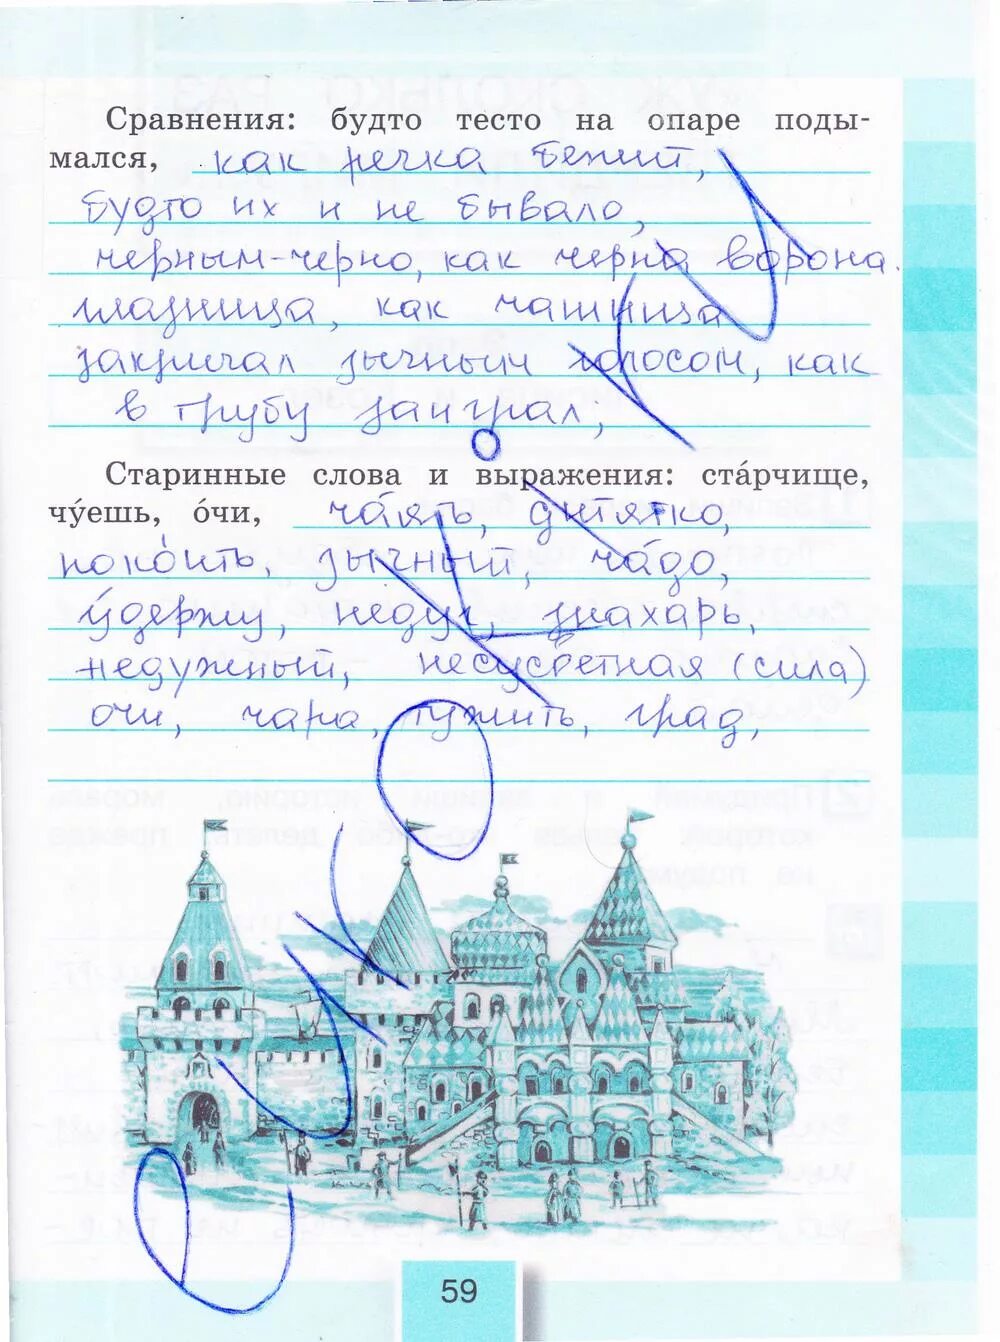 Сравнения: будто тесто на опаре поды-
мался, как речка бежит,
будто их и не бывало,
черным-черно, как черна ворона.
глазница, как чашница
закричал зычным голосом, как
в трубу заиграл,
Старинные слова и выражения: ста́рчище,
чу́ешь, о́чи, ча́ять, дитятко,
поко́ить, зычный, ча́до,
у́держу, недуг, знахарь,
недужный, несусветная (сила)
очи, чара, тужить, град,
59